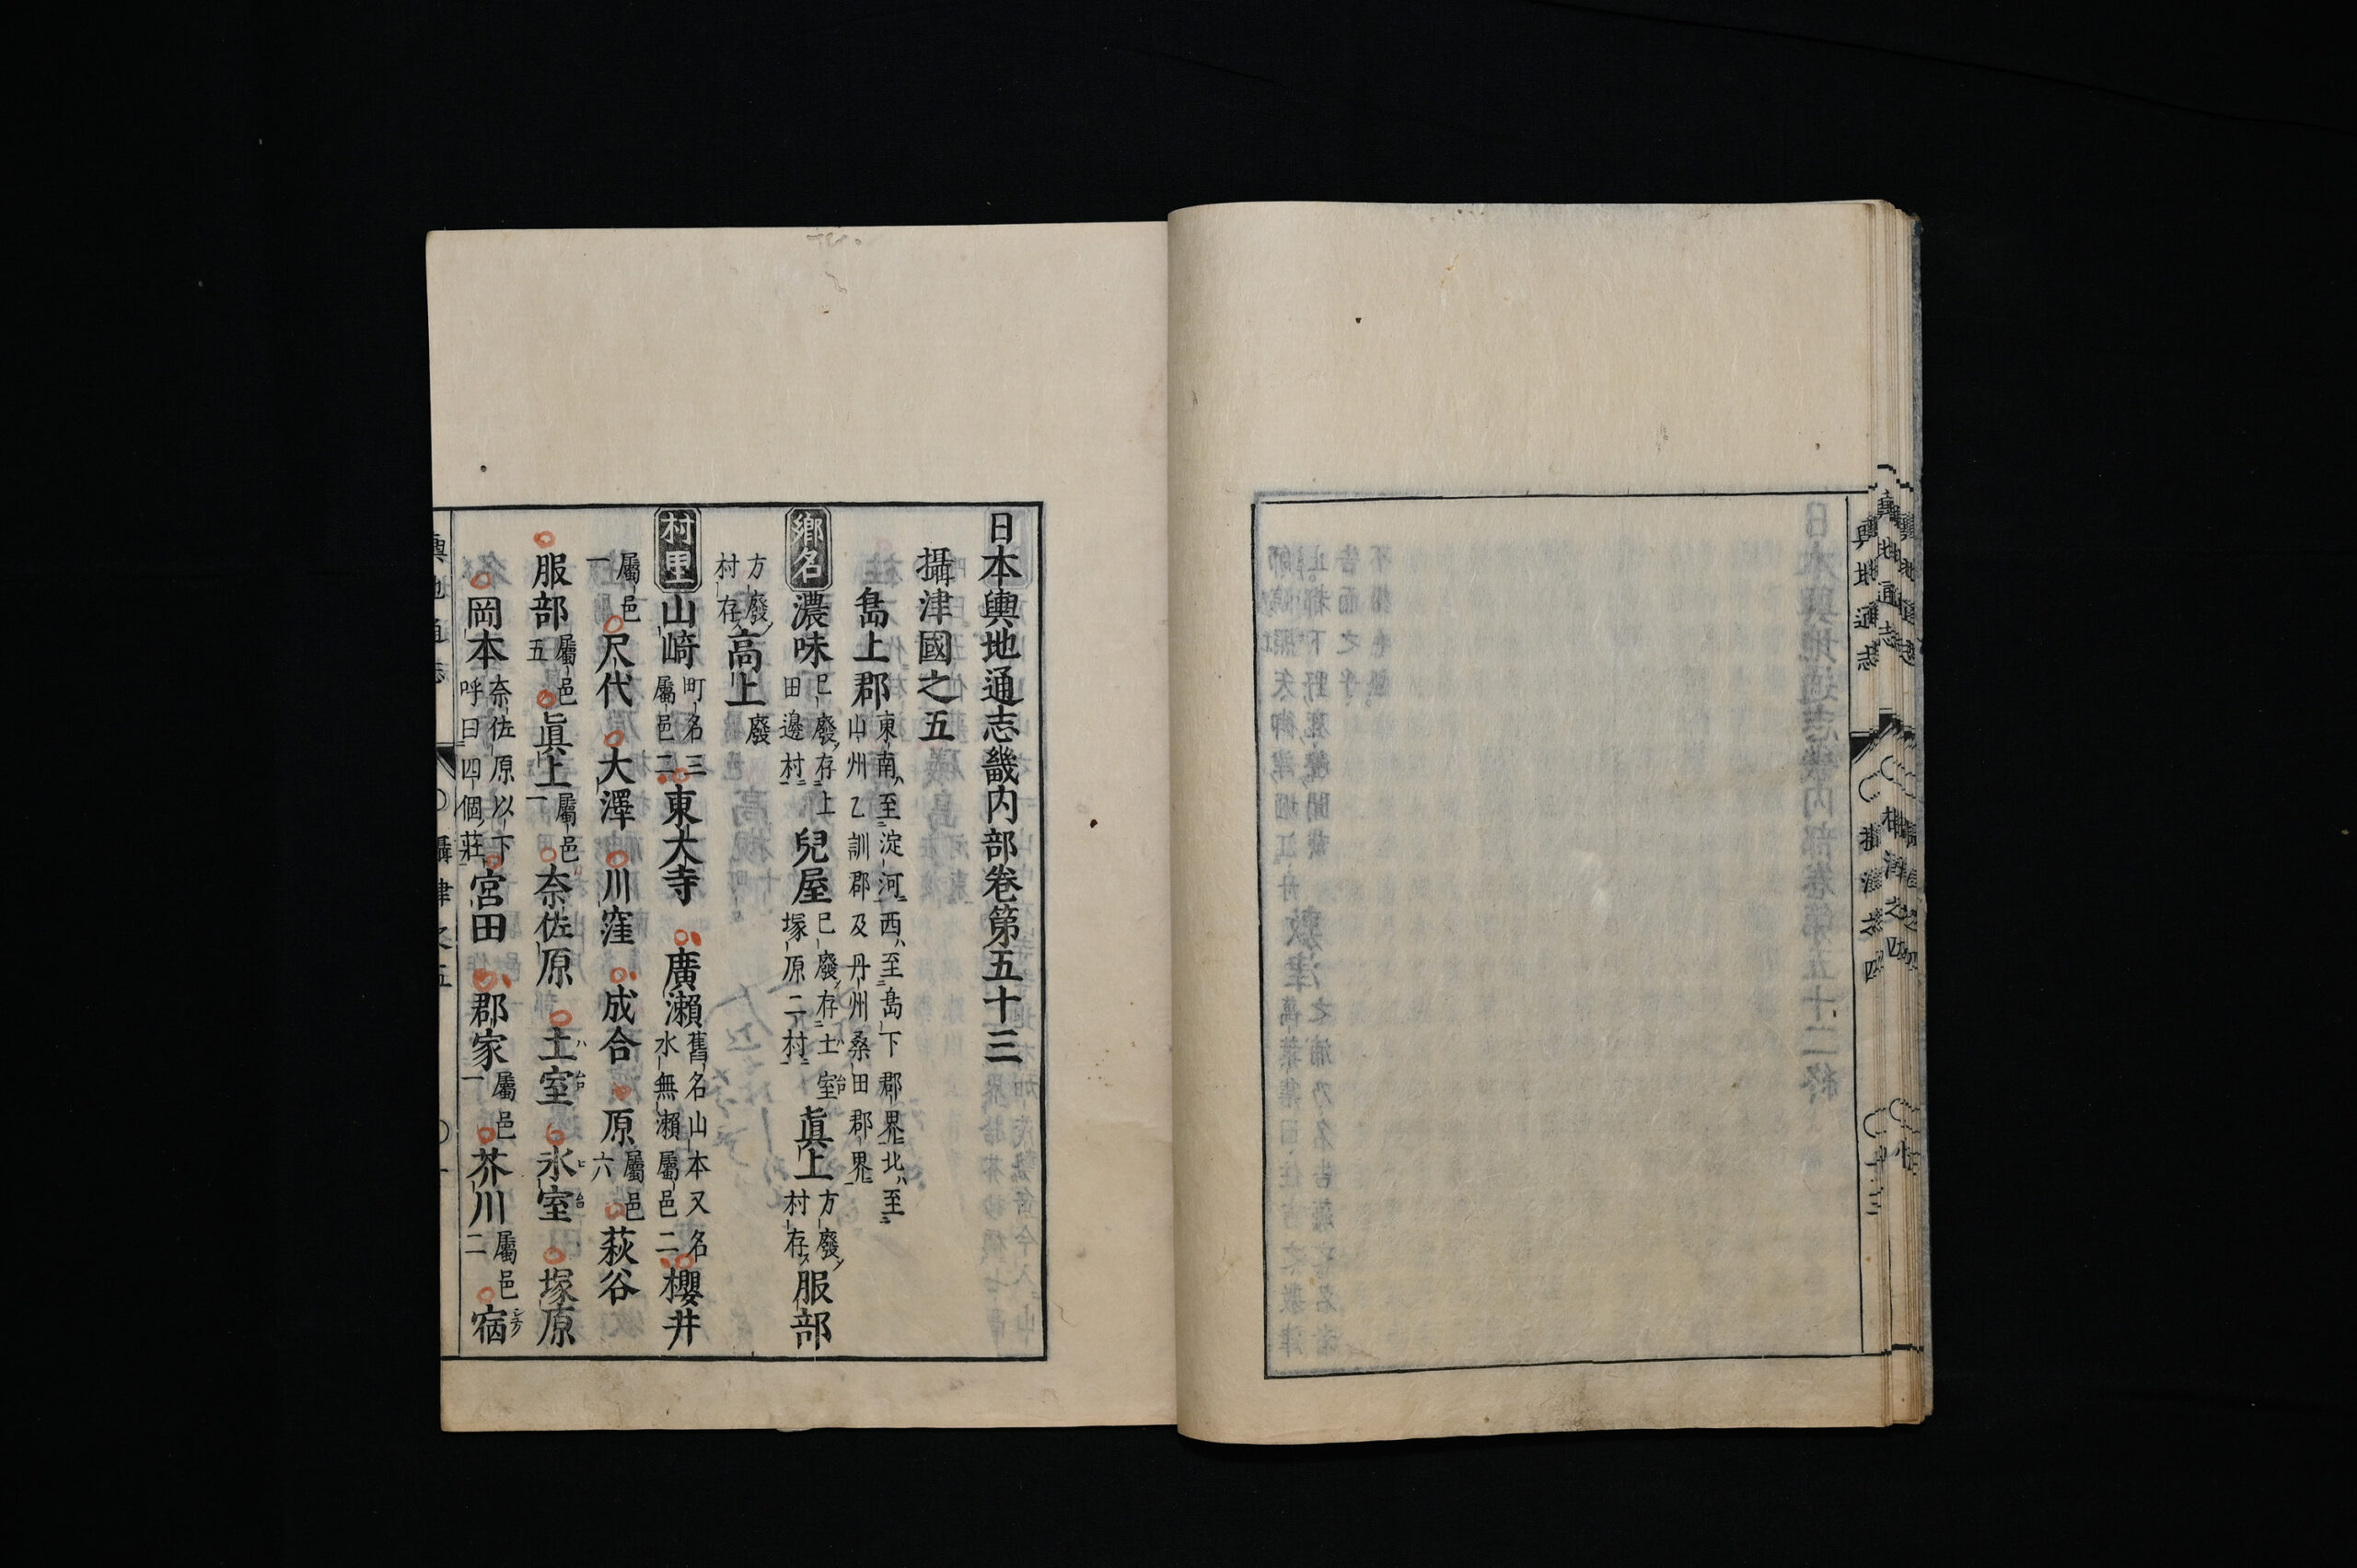 日本輿地通志畿内部巻第五十三
攝津國之五
島上郡 東南ハ至淀河西ハ至島下郡界北ハ至山州乙訓郡及丹州桑田郡界
鄉名 濃味 已廢存上田邊村 兒屋 已廢存土室塚原二村 眞上 方廢村存 服部
方廢村存 高上 廢
村里 山崎 町名三屬邑二 東大寺 廣瀬 舊名山本又名水無瀬屬邑二 櫻井
屬邑一 尺代 大澤 川窪 成合 原 屬邑六 萩谷
服部 屬邑五 眞上 屬邑一 奈佐原 土室 氷室 塚原
岡本 奈佐原以下呼曰四個莊 宮田 郡家 屬邑一 芥川 屬邑二 宿
輿地通志 攝津之五
輿地通志 攝津之四